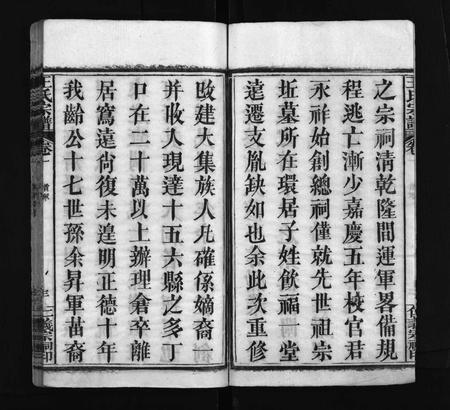 之宗祠清乾隆間運軍畧備規
程逃亡漸少嘉慶五年校官君
永祥始創總祠僅就先世祖宗
坵墓所在環居子姓飲福一堂
遠遷支胤缺如也余此次重修
改建大集族人凡確係嫡裔
并收入現達十五六縣之多丁
口在二十萬以上辦理倉卒離
居寫遠尙復未遑明正德十年
我齡公十七世孫余昇軍苗裔
氏宗譜
卷
宗祠印